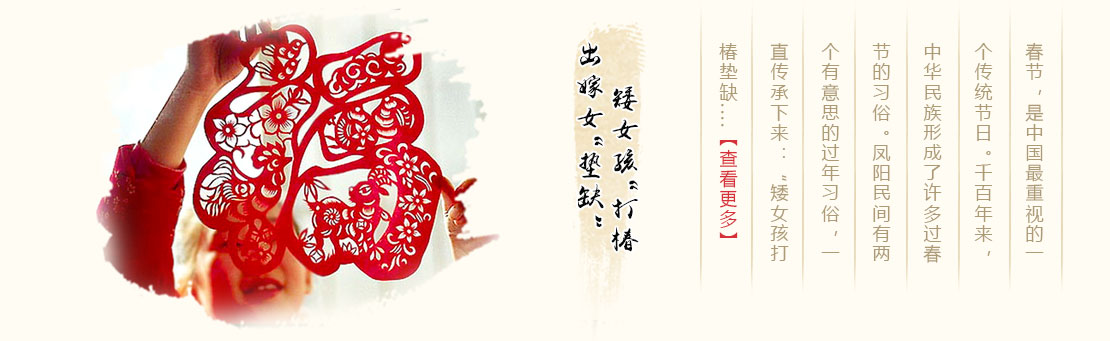 矮女孩“打椿
出嫁女“垫缺”
春节，是中国最重视的一
个传统节日。千百年来，
中华民族形成了许多过春
节的习俗。凤阳民间有两
个有意思的过年习俗，一
直传承下来：“矮女孩打
椿垫缺....【查看更多】